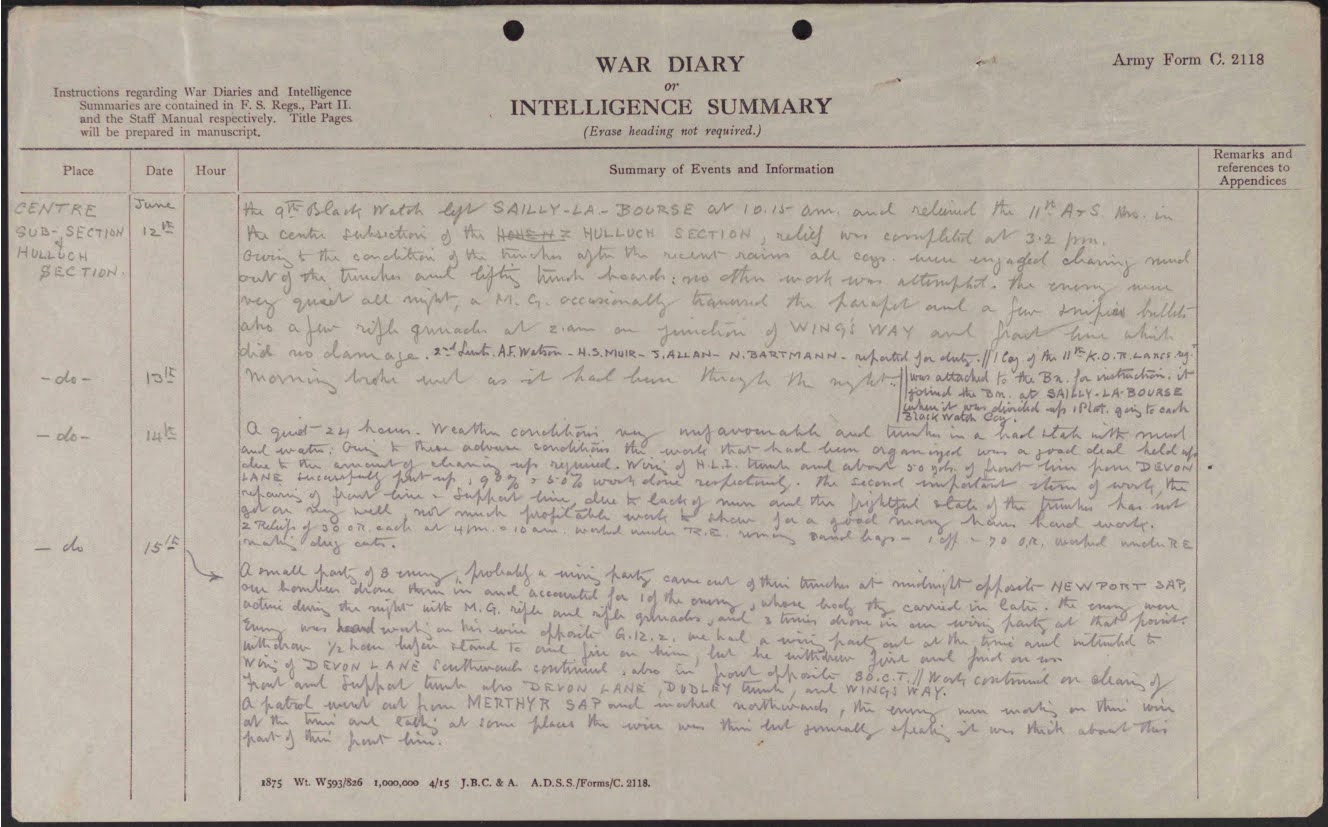 WAR DIARY
or
INTELLIGENCE SUMMARY
(Erase heading not required.)
Army Form C. 2118
Instructions regarding War Diaries and Intelligence
Summaries are contained in F. S. Regs., Part II.
and the Staff Manual respectively. Title Pages
will be prepared in manuscript.
Place Date Hour Summary of Events and Information Remarks and references to Appendices
CENTRE
SUB-SECTION
of
HULLUCH
SECTION.
June
12th
the 9th Black Watch left SAILLY-LA-BOURSE at 10.15 am. and relieved the 11th A & S. Hrs. in
the centre subsection of the HULLUCH SECTION, relief was completed at 3.2 pm.
Owing to the condition of the trenches after the recent rains all coys. were engaged cleaning mud
out of the trenches and lifting trench boards: no other work was attempted. The enemy were
very quiet all night, a M.G. occasionally traversed the parapet and a few snipers bullets
also a few rifle grenades at 2.am on junction of WINGS WAY and front line which
did no damage. 2nd Lieuts. A.F. Watson - H.S. MUIR - J. ALLAN - N. BARTMANN - reported for duty. // 1 Coy. of the 11th K.O.R. Lancs reg.
-do- 13th Morning broke wet as it had been through the night.
was attached to the Bn. for instruction. it
joined the Bn. at SAILLY-LA-BOURSE
when it was divided up 1 Plat. going to each
Black Watch Coy.
-do- 14th A quiet 24 hours. Weather conditions very unfavourable and trenches in a bad state with mud
and water. Owing to these adverse conditions the work that had been organised was a good deal held up
due to the amount of cleaning up required. Wiring of H.L.I. trench and about 50 yds. of front line from DEVON
LANE successfully put up, 90% & 50% work done respectively. The second important item of work, the
repairing of front line & support line, due to lack of men and the frightful state of the trenches has not
got on very well, not much profitable work to show for a good many hours hard work.
2 Reliefs of 30 O.R. each at 4 pm. & 10 am. worked under R.E. sand bags - 1 off & 70 O.R. worked under RE
making dug outs.
-do 15th
A small party of 8 enemy, probably a wiring party came out of their trenches at midnight opposite NEWPORT SAP,
our bombers drove them in and accounted for 1 of the enemy, whose body they carried in later. the enemy were
active during the night with M.G. rifle and rifle grenades, and 3 times drove in our wiring party at that point.
Enemy was heard working on his wire opposite G.12.2. we had a wiring party out at the time and intended to
withdraw 1/2 hour before stand to and fire on him, but he withdrew first and fired on us
Wiring of DEVON LANE Southwards continued, also in front opposite BO.C.T. // Work continued on clearing of
Front and Support trench also DEVON LANE, DUDLEY trench, and WINGS WAY.
A patrol went out from MERTHYR SAP and worked northwards, the enemy were working on their wire
at the time and talking at some places the wire was thin but generally speaking it was thick about this
part of their front line.
1875 Wt. W593/826 1,000,000 4/15 J.B.C. & A. A.D.S.S./Forms/C. 2118.